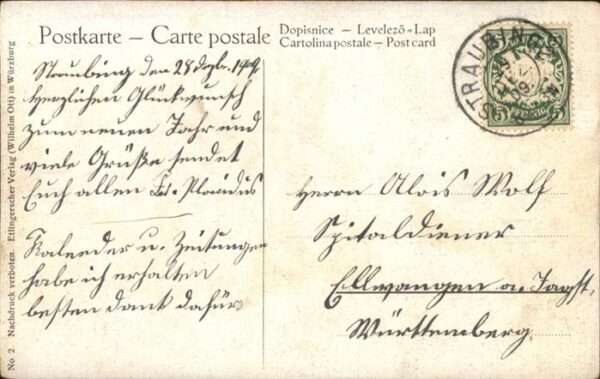 Postkarte – Carte postale
Dopisnice – Levelező-Lap
Cartolina postale – Post card
STRAUBING
Straubing den 28 Dzbr. 1909
Herzlichen Glückwunsch
zum neuen Jahr und
viele Grüße sendet
Euch allen Fr. Plazidus
Kalender u. Zeitungen
habe ich erhalten
besten Dank dafür
Herrn Alois Wolf
Spitaldiener
Ellwangen a. Jagst,
Württemberg
No 2 Nachdruck verboten. Etlingerscher Verlag (Wilhelm Ott) in Würzburg